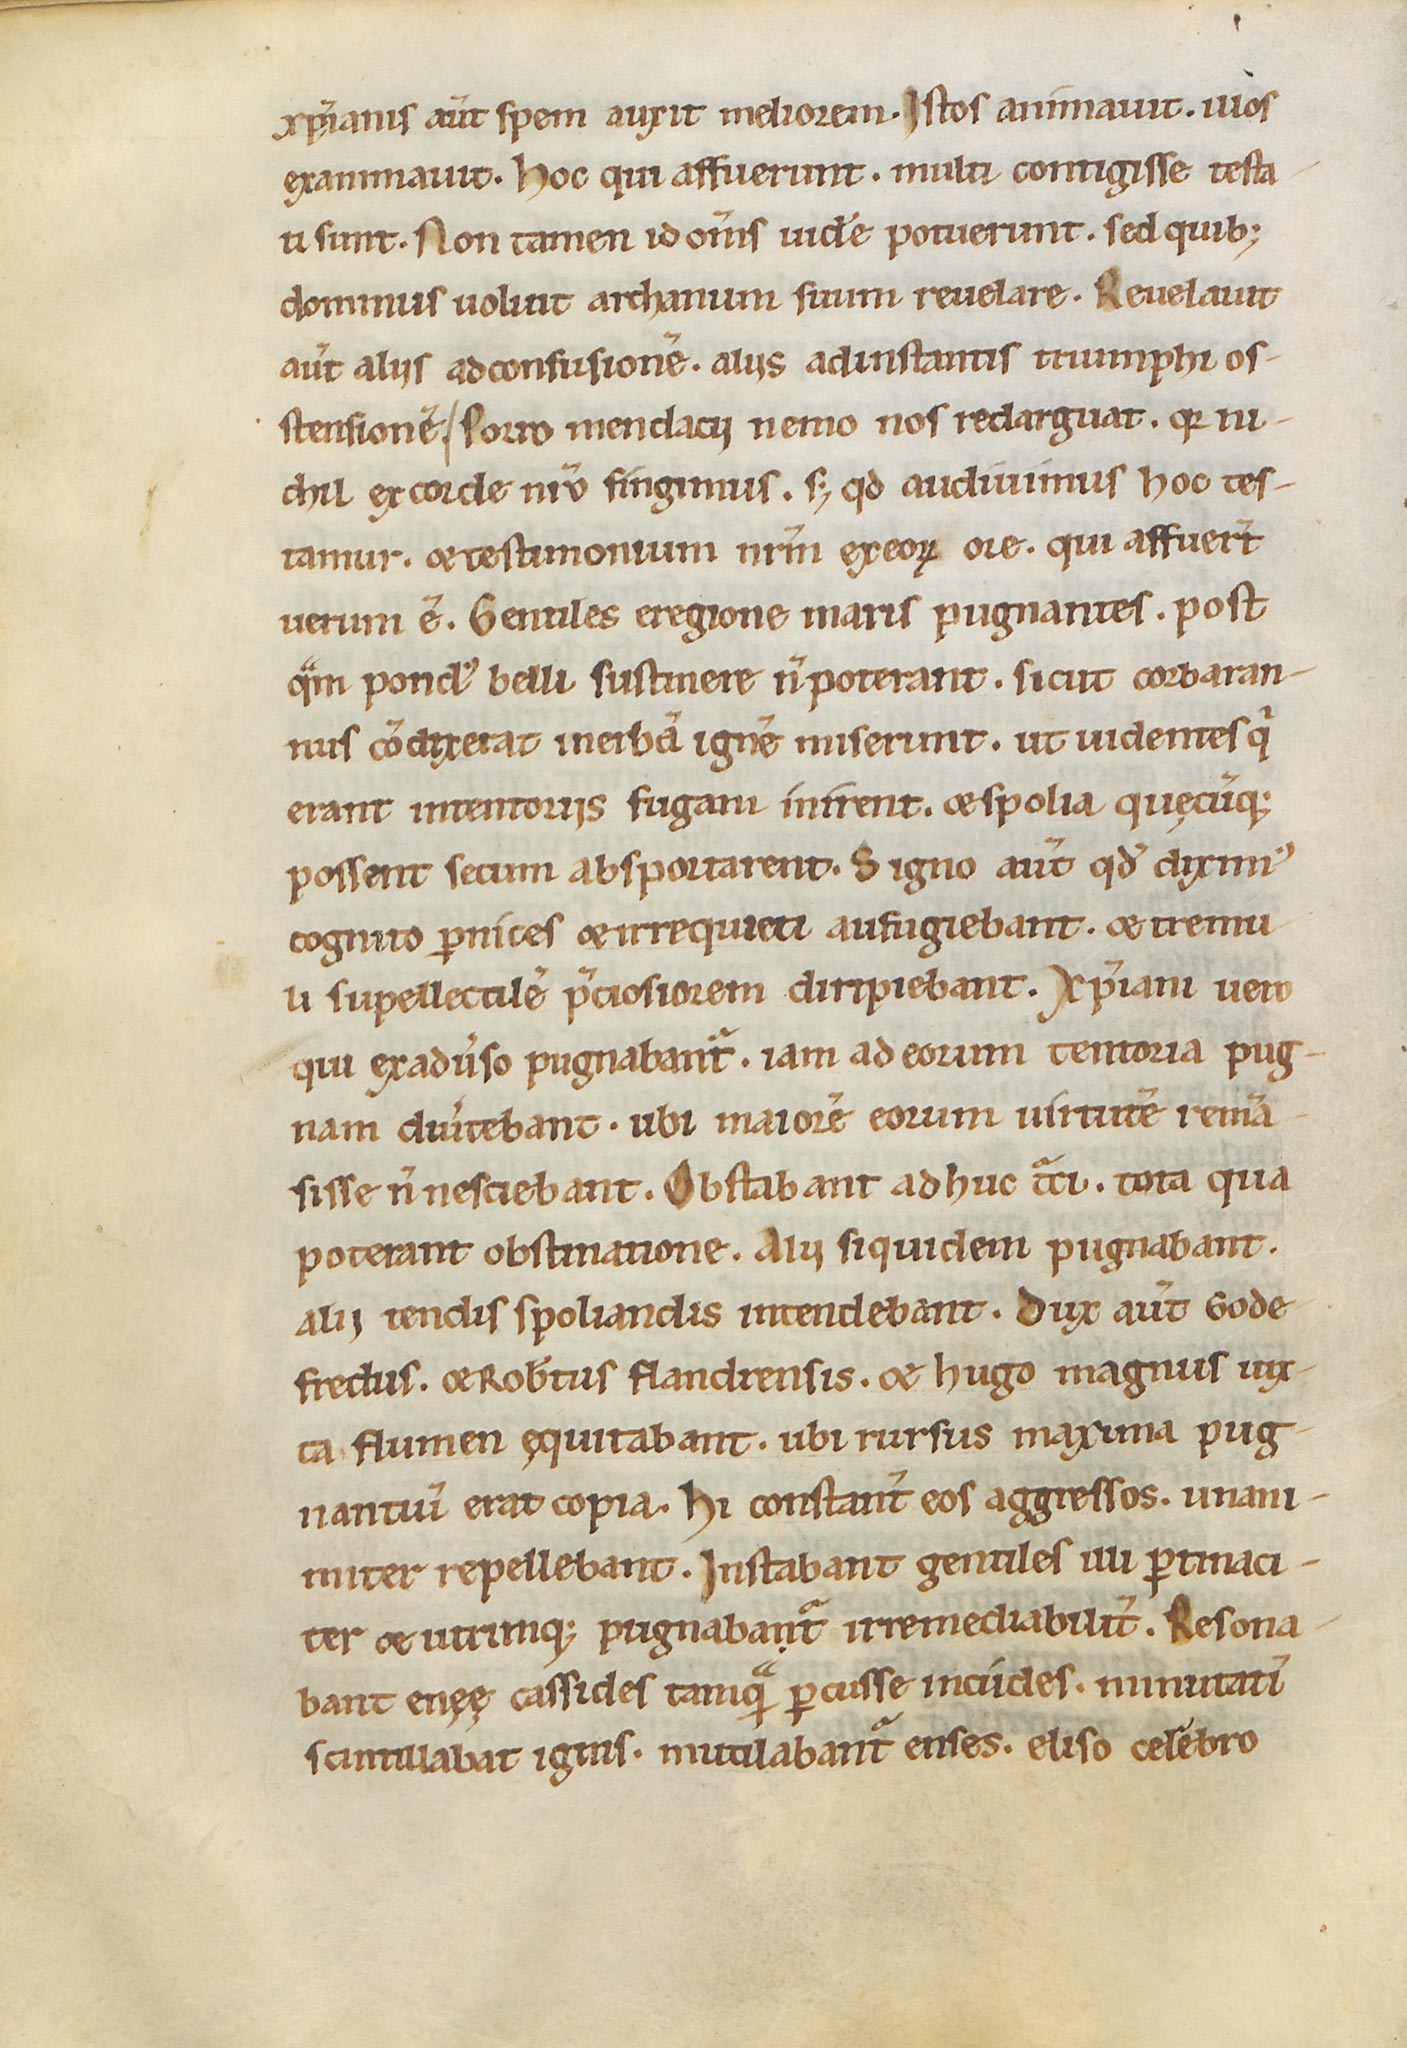 xp̄ianis aut̄ spem auxit meliorem. Istos animauit. illos
exanimauit. Hoc qui affuerunt. multi contigisse testa-
ti sunt. Non tamen id om̄s uidēe potuerunt. sed quib;
dominus uoluit archanum suum reuelare. Reuelauit
aut̄ alijs ad confusionē. alijs ad instantis triumphi os-
tensionē. Porro mendacij nemo nos redarguat. qr ni-
chil ex corde nr̄o fingimus. s; qd audiuimus hoc tes-
tamur. & testimonium nrm̄ ex eoꝝ ore. qui affuer̄t
uerum ē. Gentiles e regione maris pugnantes. post
qm̄ pond᾽ belli sustinere n̄ poterant. sicut corbaran-
nus cōdixerat in erbā ignē miserunt. ut uidentes qⁱ
erant in tentorijs fugam inirent. & spolia quęcūq;
possent secum absportarent. Signo aut̄ qd̄ dixim᾽
cognito ꝑnices & irrequieti aufugiebant. & tremu
li supellectilē p̄ciosiorem diripiebant. Xp̄iani uero
qui ex adūso pugnabant᷑. iam ad eorum tentoria pug-
nam diūtebant. ubi maiorē eorum uirtutē remā-
sisse n̄ nesciebant. Obstabant adhuc t᷑ci. tota qua
poterant obstinatione. Alij siquidem pugnabant.
alij tendis spoliandis intendebant. Dux aut̄ Gode
fredus. & Rob̄tus flandrensis. & hugo magnus iux-
ta flumen ęquitabant. ubi rursus maxima pug-
nantiū erat copia. Hi constant̄ eos aggressos. unani-
miter repellebant. Instabant gentiles illi ꝑtinaci-
ter & utrimq; pugnabant᷑ irremediabilit̄. Resona-
bant eneę cassides tamqᷓ ꝑcusse incudes. minutatī
scintillabat ignis. mutilabant᷑ enses. eliso celebro